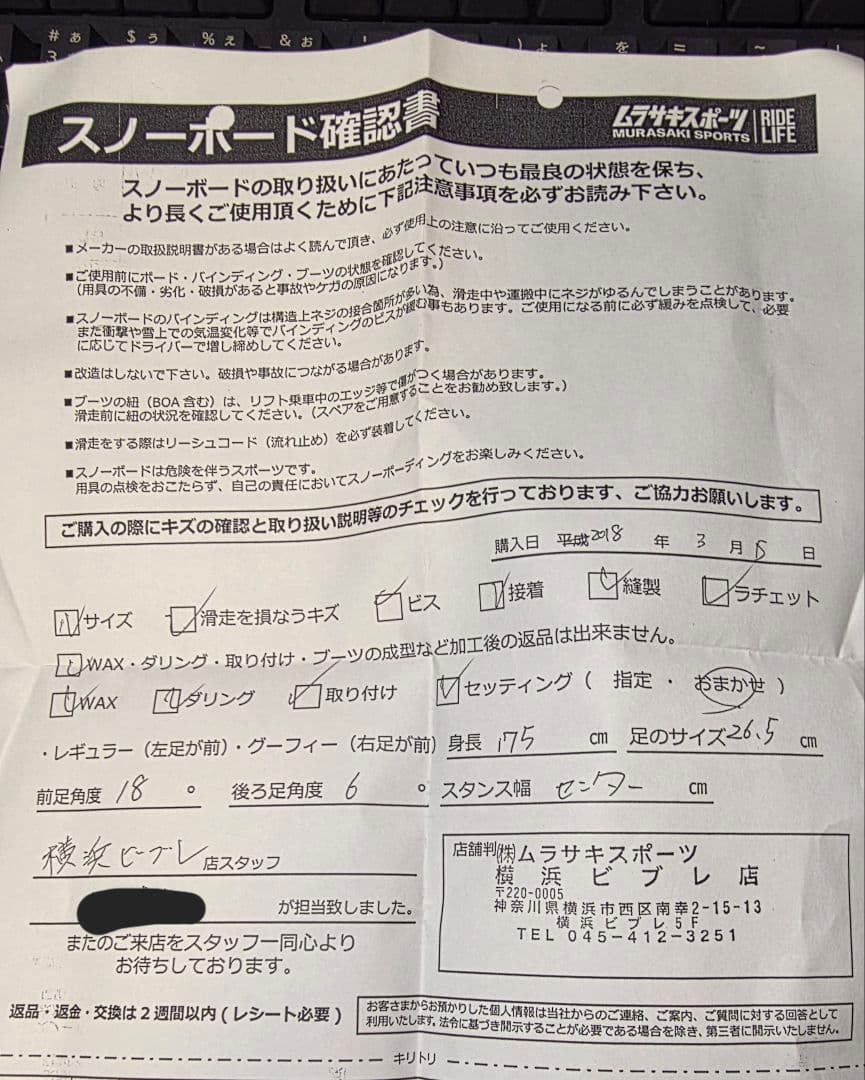 # ぁ $ ぅ % ぇ & ぉ を = ~
3
スノーボード確認書
ムラサキスポーツ
MURASAKI SPORTS
RIDE
LIFE
スノーボードの取り扱いにあたっていつも最良の状態を保ち、
より長くご使用頂くために下記注意事項を必ずお読み下さい。
■メーカーの取扱説明書がある場合はよく読んで頂き、必ず使用上の注意に沿ってご使用ください。
■ご使用前にボード・バインディング・ブーツの状態を確認してください。
(用具の不備・劣化・破損があると事故やケガの原因になります。)
■スノーボードのバインディングは構造上ネジの接合箇所が多い為、滑走中や運搬中にネジがゆるんでしまうことがあります。
また衝撃や雪上での気温変化等でバインディングのビスが緩む事もあります。ご使用になる前に必ず緩みを点検して、必要
に応じてドライバーで増し締めしてください。
■改造はしないで下さい。破損や事故につながる場合があります。
■ブーツの紐(BOA含む)は、リフト乗車中のエッジ等で傷がつく場合があります。
滑走前に紐の状況を確認してください。(スペアをご用意することをお勧め致します。)
■滑走をする際はリーシュコード(流れ止め)を必ず装着してください。
■スノーボードは危険を伴うスポーツです。
用具の点検をおこたらず、自己の責任においてスノーボーディングをお楽しみください。
ご購入の際にキズの確認と取り扱い説明等のチェックを行っております、ご協力お願いします。
購入日 平成2018 年 3 月 5 日
サイズ 滑走を損なうキズ ビス 接着 縫製 ラチェット
WAX・ダリング・取り付け・ブーツの成型など加工後の返品は出来ません。
WAX ダリング 取り付け セッティング ( 指定 ・ おまかせ )
・レギュラー(左足が前)・グーフィー(右足が前) 身長 175 cm 足のサイズ 26.5 cm
前足角度 18 ° 後ろ足角度 6 ° スタンス幅 センター cm
横浜ビブレ 店スタッフ
が担当致しました。
またのご来店をスタッフ一同心より
お待ちしております。
店舗判 ㈱ムラサキスポーツ
横浜ビブレ店
〒220-0005
神奈川県横浜市西区南幸2-15-13
横浜ビブレ5F
TEL 045-412-3251
返品・返金・交換は2週間以内(レシート必要)
お客さまからお預かりした個人情報は当社からのご連絡、ご案内、ご質問に対する回答として
利用いたします。法令に基づき開示することが必要である場合を除き、第三者に開示いたしません。
キリトリ